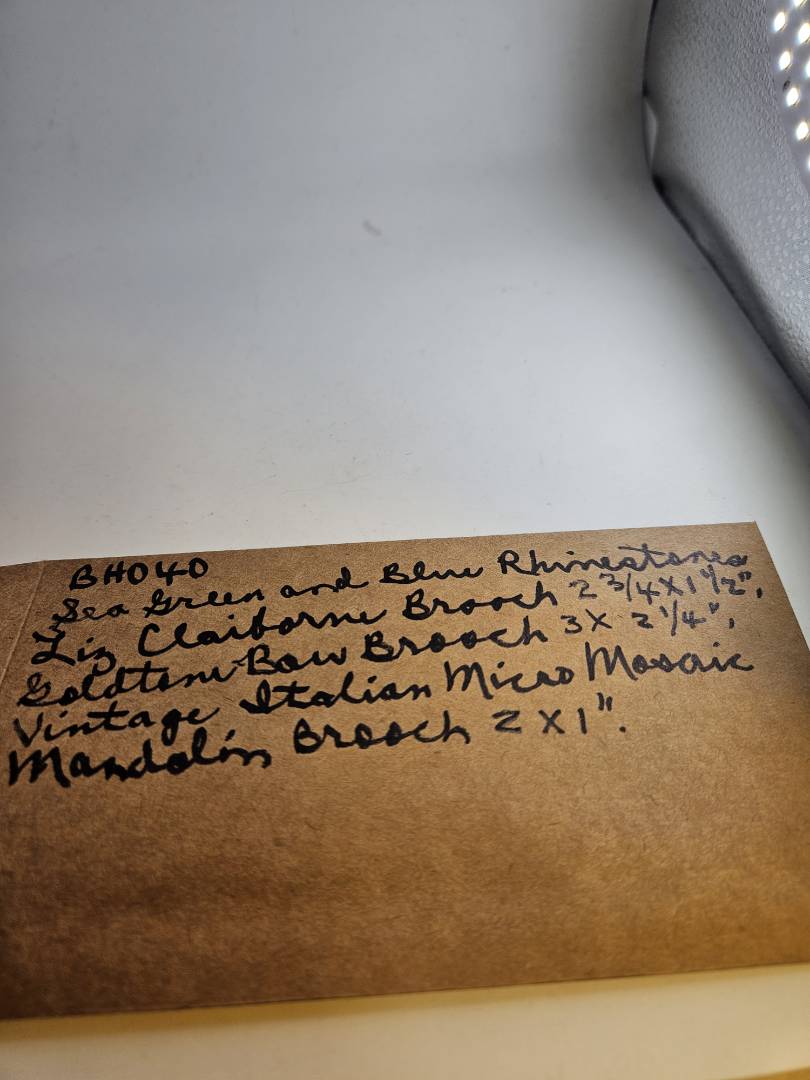 BH040
Sea Green and Blue Rhinestones
Liz Claiborne Brooch 2 3/4 X 1 1/2",
Goldtone Bow Brooch 3 X 2 1/4",
Vintage Italian Micro Mosaic
Mandolin Brooch 2 X 1".